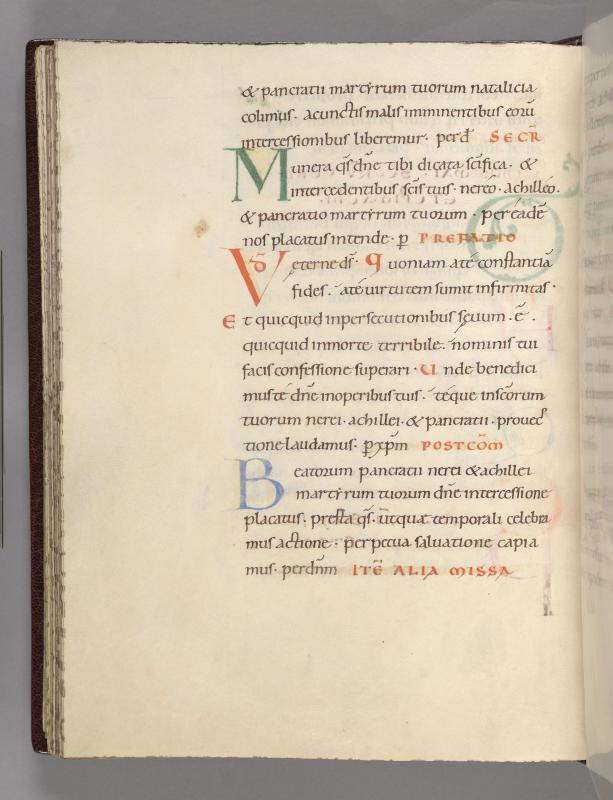 & pancratii martẏrum tuorum natalicia
colimus. acunctis malis imminentibus eorū
intercessionibus liberemur. perd̄ SECR̄
Munera qs̄ dn̄e tibi dicata scīfica. &
intercedentibus scīs tuis. nereo. achilleo.
& pancratio martẏrum tuorum. per eadē
nos placatus intende. p̄ PREFATIO
VD̄ eterne ds̄. Quoniam ate constantiā
fides. ate uirtutem sumit infirmitas.
Et quicquid inpersecutionibus sęuum. ē.
quicquid inmorte terribile. nominis tui
facis confessione superari. Unde benedici
muste dn̄e inoperibus tuis. teque inscōrum
tuorum nerei. achillei. & pancratii. prouec
tione laudamus. p̄ xp̄m POSTCOM̄
Beatorum pancratii nerei & achillei
martẏrum tuorum dn̄e intercessione
placatus. pręsta qs̄. ut quę temporali celebra
mus actione. perpetua saluatione capia
mus. per dn̄m ITĒ ALIA MISSA